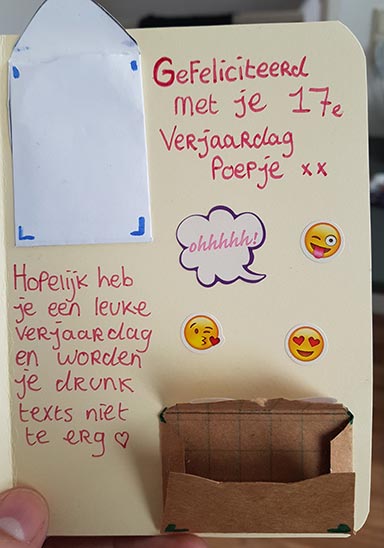 Gefeliciteerd
met je 17e
Verjaardag
Poepje xx
ohhhhhh!
Hopelijk heb
je een leuke
verjaardag
en worden
je drunk
texts niet
te erg ♡